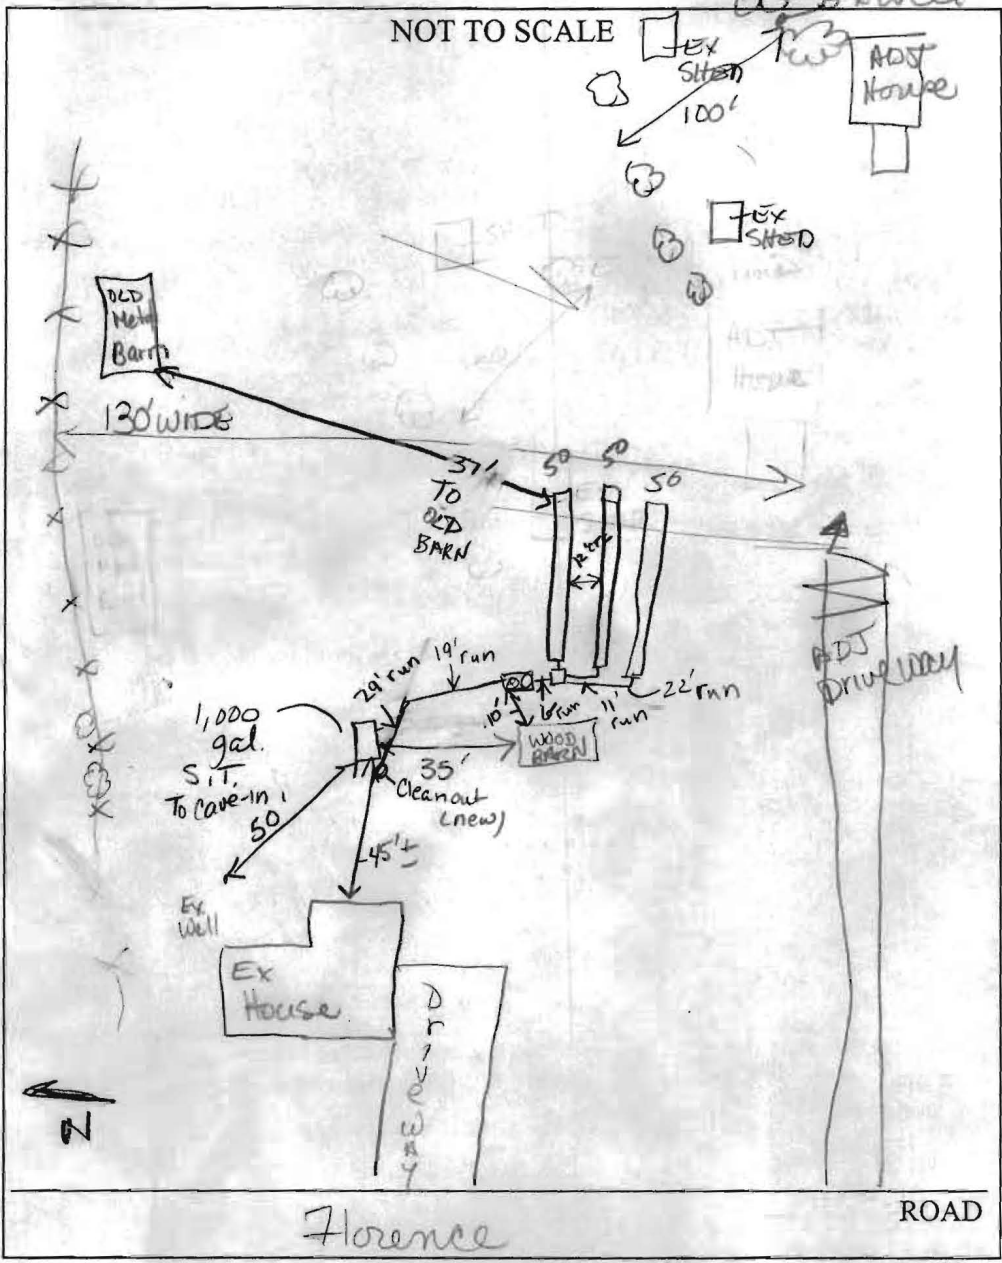 NOT TO SCALE
EX
SHED
100'
ADJ
House
EX
SHED
OLD
Metal
Barn
130' WIDE
37'
TO
OLD
BARN
50
50
50
ADJ
Driveway
29' run
19' run
10'
6' run
11'
run
22' run
WOOD
BARN
35'
1,000
gal.
S.T.
To Cave-in
50'
Cleanout
(new)
45'±
Ex
Well
Ex
House
Driveway
N
Florence
ROAD